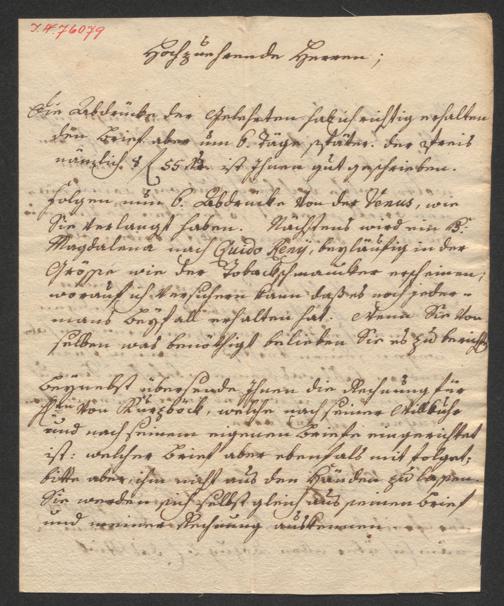 I.N. 76079
Hochzuehrende Herren;
Die Abdrücke der Gelehrten hab ich richtig erhalten
den Brief aber um 6. Täge später. der Preis
nämlich 8 f 55 Xr. ist Ihnen gut geschrieben.
Folgen nun 6. Abdrücke von der Venus, wie
Sie verlangt haben. Nächstens wird ein
Magdalena nach Guido Reni, beyläufig in der
Grösse wie der Tobackschmaucker erscheinen;
worauf ich versichern kann daß es noch jeder-
mans Beyfall erhalten hat. Wenn Sie von
selben was benöthigt belieben Sie es zu berichten
Beynebst übersende Ihnen die Rechnung für
von Kurzböck, welche nach seiner
und nach seinem eigenen Briefe eingerichtet
ist: welcher Brief aber ebenfals mit folget;
bitte aber ihm nicht aus den Händen zu lassen.
Sie werden sich selbst gleich aus seinem Brief
und meiner Rechnung auskennen